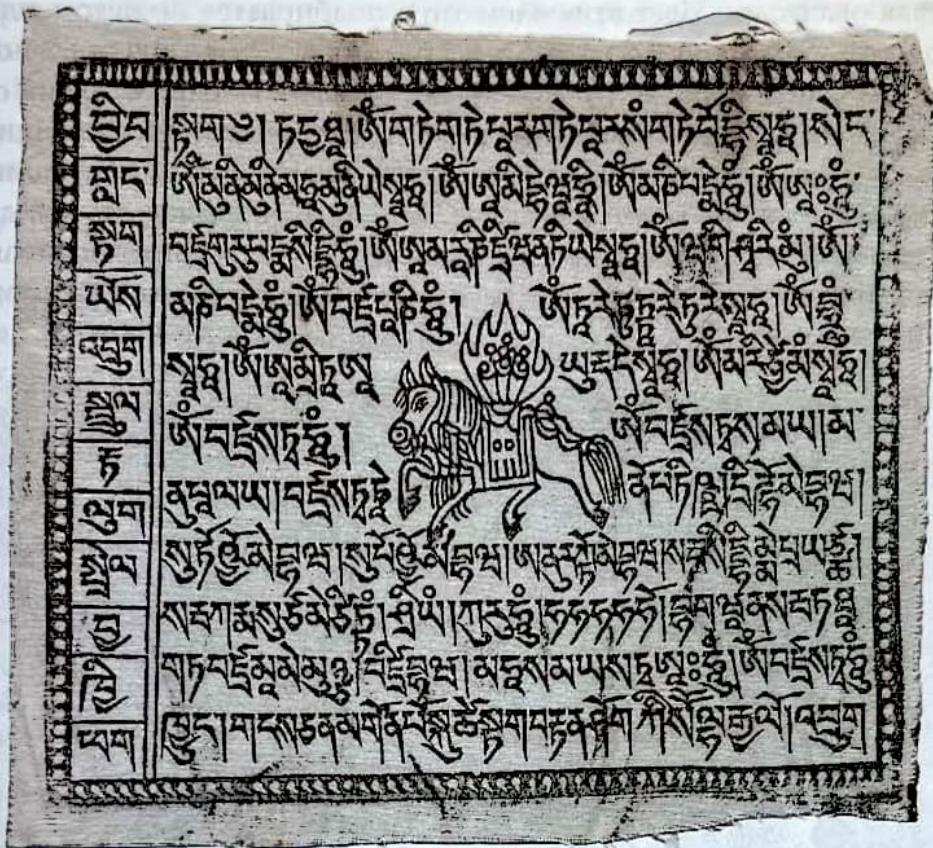 བྱི་བ
གླང་
སྟག
ཡོས
འབྲུག
སྦྲུལ
རྟ
ལུག
སྤྲེལ
བྱ
ཁྱི
ཕག
སྟག ༧། ཏདྱཐཱ། ཨོཾ་གཏེ་གཏེ་པཱརགཏེ་པཱརསཾགཏེ་བོདྷི་སྭཱཧཱ། སེང་
ཨོཾ་མུནི་མུནི་མཧཱམུནིཡེ་སྭཱཧཱ། ཨོཾ་ཨཱ་ཨོཾ་མཎི་པདྨེ་ཧཱུྃ། ཨོཾ་ཨཱཿཧཱུྃ་
བཛྲ་གུརུ་པདྨ་སིདྡྷི་ཧཱུྃ། ཨོཾ་ཨ་མ་རཱ་ཎི་ཛཱི་ཝནྟི་ཡེ་སྭཱཧཱ། ཨོཾ་ཝཱ་གི་ཤྭ་རི་མུྃ། ཨོཾ་
མཎི་པདྨེ་ཧཱུྃ། ཨོཾ་བཛྲ་པཱཎི་ཧཱུྃ། ཨོཾ་ཏཱ་རེ་ཏུཏྟཱ་རེ་ཏུ་རེ་སྭཱཧཱ། ཨོཾ་
སྭཱཧཱ། ཨོཾ་ཨ་མྲྀ་ཏཱ་ཨཱ ཡུརྡ་དེ་སྭཱཧཱ། ཨོཾ་མ་རི་ཙྱེ་མཾ་སྭཱཧཱ།
ཨོཾ་བཛྲ་སཏྭ་ཧཱུྃ། ཨོཾ་བཛྲ་སཏྭ་ས་མ་ཡ། མ་
ནུ་པཱ་ལ་ཡ། བཛྲ་སཏྭ་ཏྭེ ནོ་པ་ཏིཥྛ། དྲྀ་ཌྷོ་མེ་བྷ་ཝ།
སུ་ཏོ་ཥྱོ་མེ་བྷ་ཝ། སུ་པོ་ཥྱོ་མེ་བྷ་ཝ། ཨ་ནུ་རཀྟོ་མེ་བྷ་ཝ། སརྦ་སིདྡྷི་མྨེ་པྲ་ཡཙྪ།
སརྦ་ཀརྨ་སུ་ཙ་མེ་ཙིཏྟཾ། ཤྲི་ཡཾ། ཀུ་རུ་ཧཱུྃ། ཧ་ཧ་ཧ་ཧ་ཧོ། བྷ་ག་ཝཱན་སརྦ་ཏ་ཐཱ་
ག་ཏ་བཛྲ་མཱ་མེ་མུཉྩ། བཛྲི་བྷ་ཝ། མ་ཧཱ་ས་མ་ཡ་སཏྭ་ཨཱཿཧཱུྃ། ཨོཾ་བཛྲ་སཏྭ་ཧཱུྃ།
ཁྱུང་། གངས་ཅན་མགོན་པོ་སྐུ་ཚེ་རྟག་བརྟན་ཤོག ཀི་སོ་ལྷ་རྒྱལ་ལོ། འབྲུག